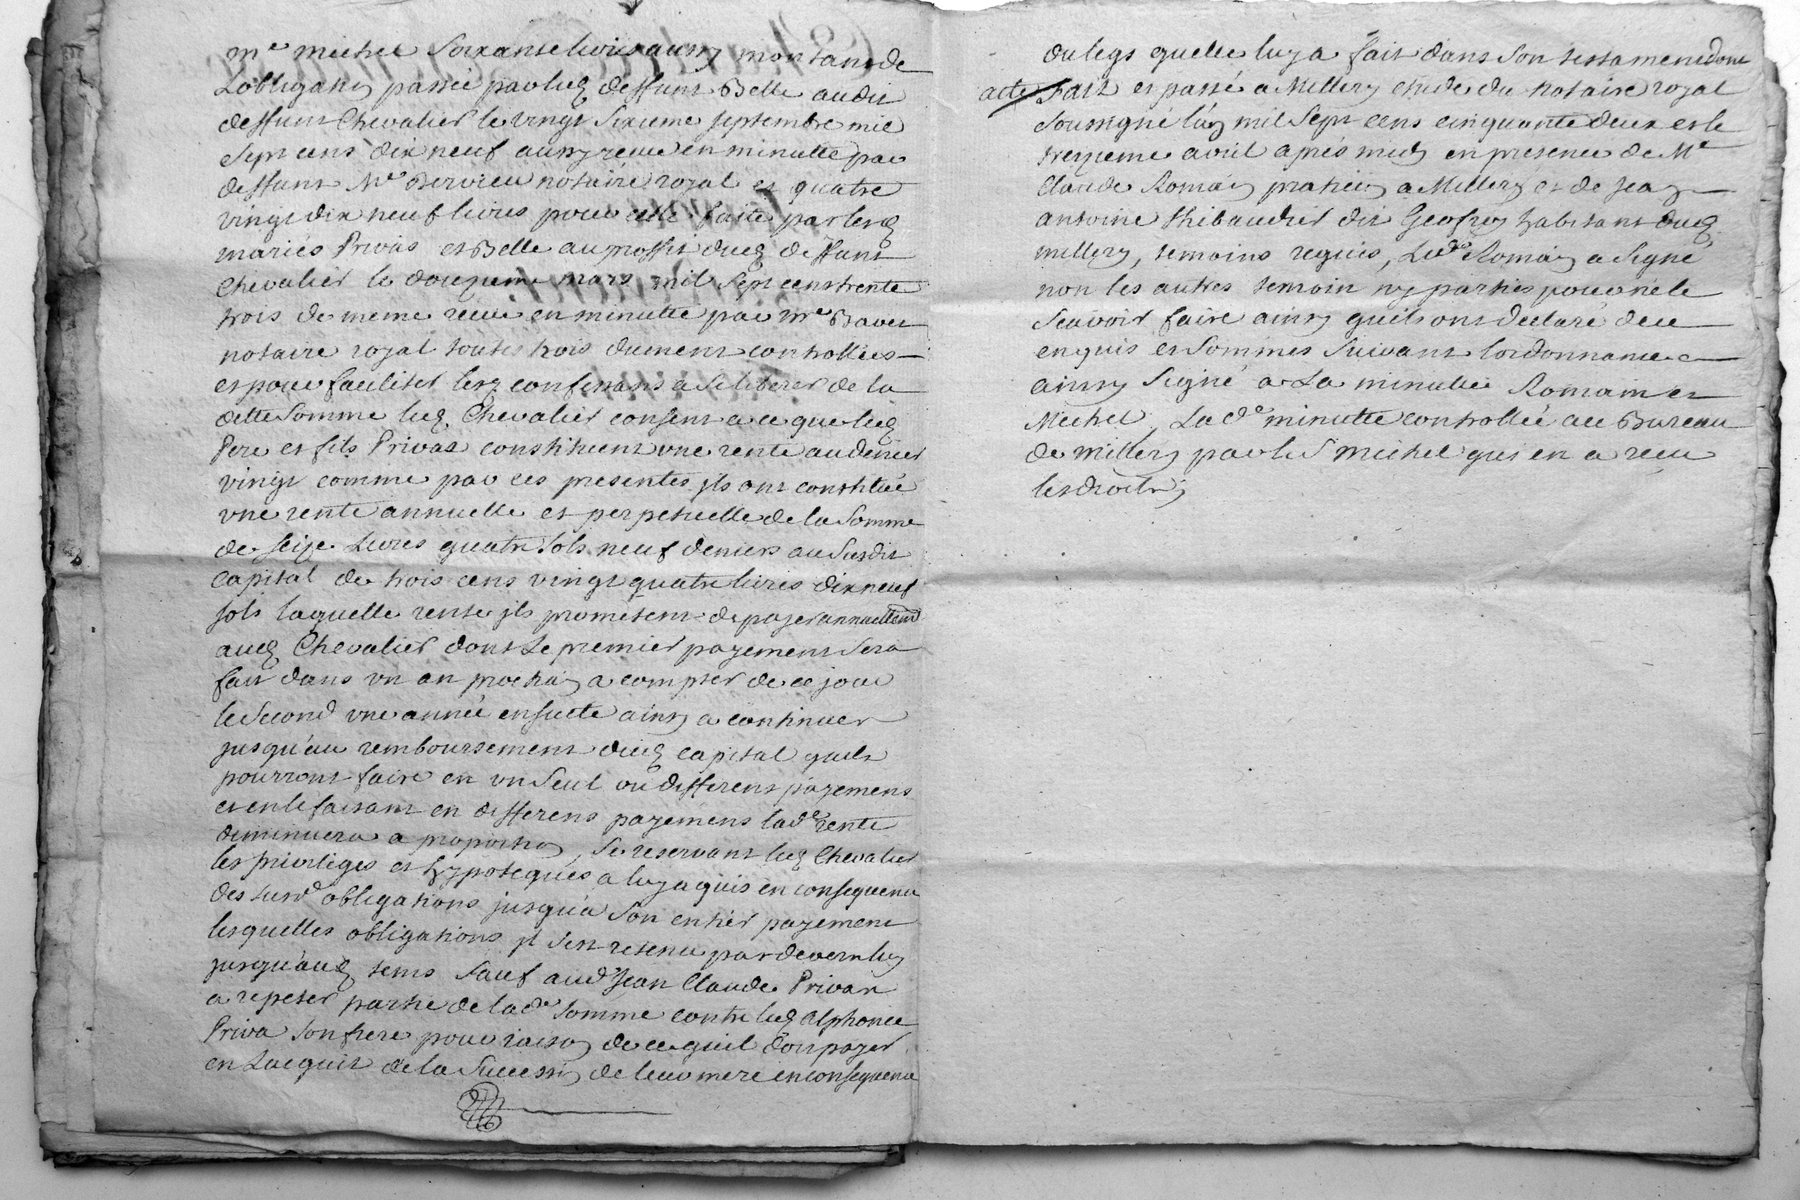 me michel soixante livres aussy montant de
Lobligation passée par lesd deffunt Belle audit
deffunt Chevalier le vingt sixieme septembre mil
sept cens dix neuf aussy reçue en minutte par
deffunt Me Bervieu notaire royal et quatre
vingt dix neuf livres pour celle faite par lesd
mariés Privas et Belle au proffit dud deffunt
Chevalier le douzieme mars mil sept cens trente
trois de meme recue en minutte par me
notaire royal toutes trois dument controllées
et pour faciliter lesd confessans a se liberer de la
ditte somme led Chevalier consent a ce que lesd
Pere et fils Privas constituent une rente au denier
vingt comme par ces presentes ils ont constitué
une rente annuelle et perpetuelle de la somme
de seize livres quatre sols neuf deniers au susdit
capital de trois cens vingt quatre livres dix neuf
sols laquelle rente ils prometent de payer annuellemt
aud Chevalier dont le premier payement sera
fait dans un an prochain a compter de ce jour
le second une année ensuitte ainsy a continuer
jusqu'au remboursement dud capital quils
pourront faire en un seul ou differens payemens
et en le faisant en differens payemens lade rente
diminuera a proportion, se reservant led Chevalier
les privileges et hypoteques a luy aquis en consequence
des susd obligations jusqu'a son entier payement
lesquelles obligations il s'est retenu par devern luy
jusqu'aud tems sauf aud Jean Claude Privas
a repeter partie de lade somme contre led Alphonce
Priva son frere pour raison de ce quil doit payer
en Lacquit de la succession de leur mere en consequence
du legs quelle luy a fait dans son testament dont
acte Fait et passé a Millery etude du notaire royal
soussigné l'an mil sept cens cinquante deux et le
treizieme avril après midy en presence de Me
Claude Romain praticien a Millery et de Jean
antoine Thibaudier dit Geofroy habitant dud
millery, temoins requis, Led Romain a signé
non les autres temoin ny parties pour ne le
scavoir faire ainsy quils ont declaré de ce
enquis et sommés suivant lordonnance
ainsy signé a La minutte Romain et
Michel, La de minutte controllée au Bureau
de millery par le S michel qui en a recu
les droits